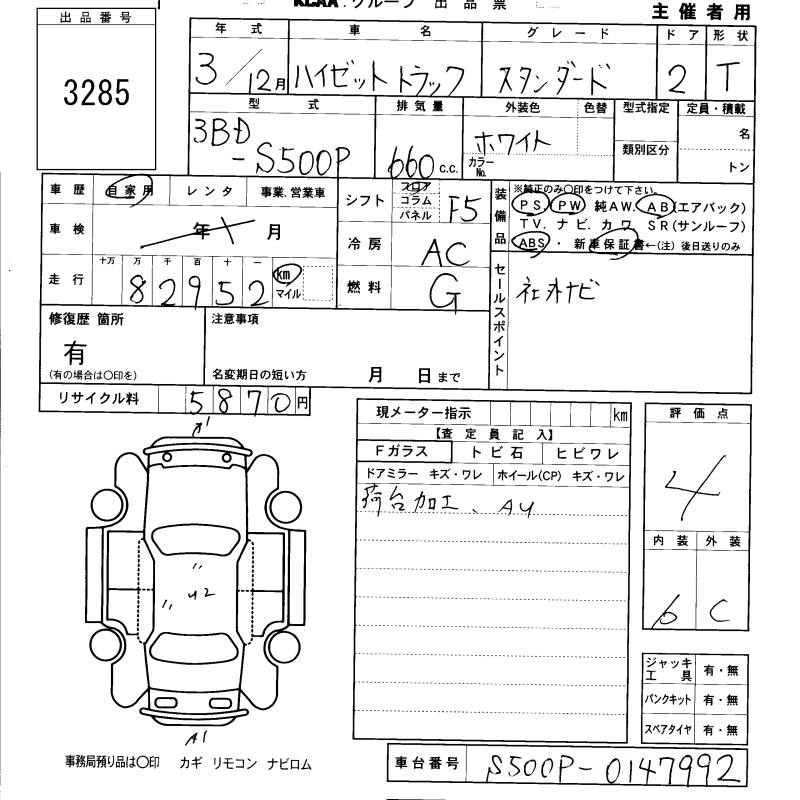 KCAA.グループ 出品票
主催者用
出品番号
3285
年式 車名 グレード ドア 形状
3/12月 ハイゼットトラック スタンダード 2 T
型式 排気量 外装色 色替 型式指定 定員・積載
3BD-S500P 660c.c. ホワイト 名
カラーNo. 類別区分 トン
車歴 自家用 レンタ 事業.営業車
車検 年 月
十万 万 千 百 十 一
走行 82952 km マイル
シフト フロア コラム パネル F5
冷房 AC
燃料 G
装備品
※純正のみ○印をつけて下さい。
PS PW 純AW. AB(エアバック)
TV. ナビ. カワ SR(サンルーフ)
ABS・新車保証書←(注)後日送りのみ
セールスポイント
社外ナビ
修復歴 箇所
有
(有の場合は○印を)
注意事項
名変期日の短い方 月 日まで
リサイクル料 5870円
現メーター指示 km
【査定員記入】
Fガラス トビ石 ヒビワレ
ドアミラー キズ・ワレ ホイール(CP) キズ・ワレ
荷台加工、AU
評価点
4
内装 外装
6 C
ジャッキ工具 有・無
パンクキット 有・無
スペアタイヤ 有・無
U2
A1
事務局預り品は○印 カギ リモコン ナビロム
車台番号 S500P-0147992